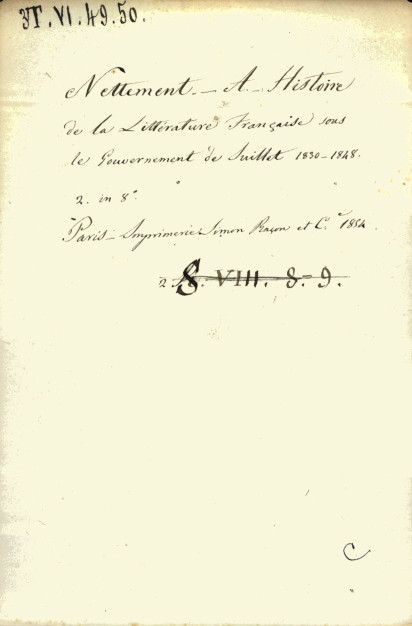 3T.VI.49.50.
Nettement - A - Histoire
de la Littérature Française sous
le Gouvernement de Juillet 1830-1848.
2. in 8°
Paris - Imprimerie Simon Raçon et C.ie 1854
VIII. 8-9.
C